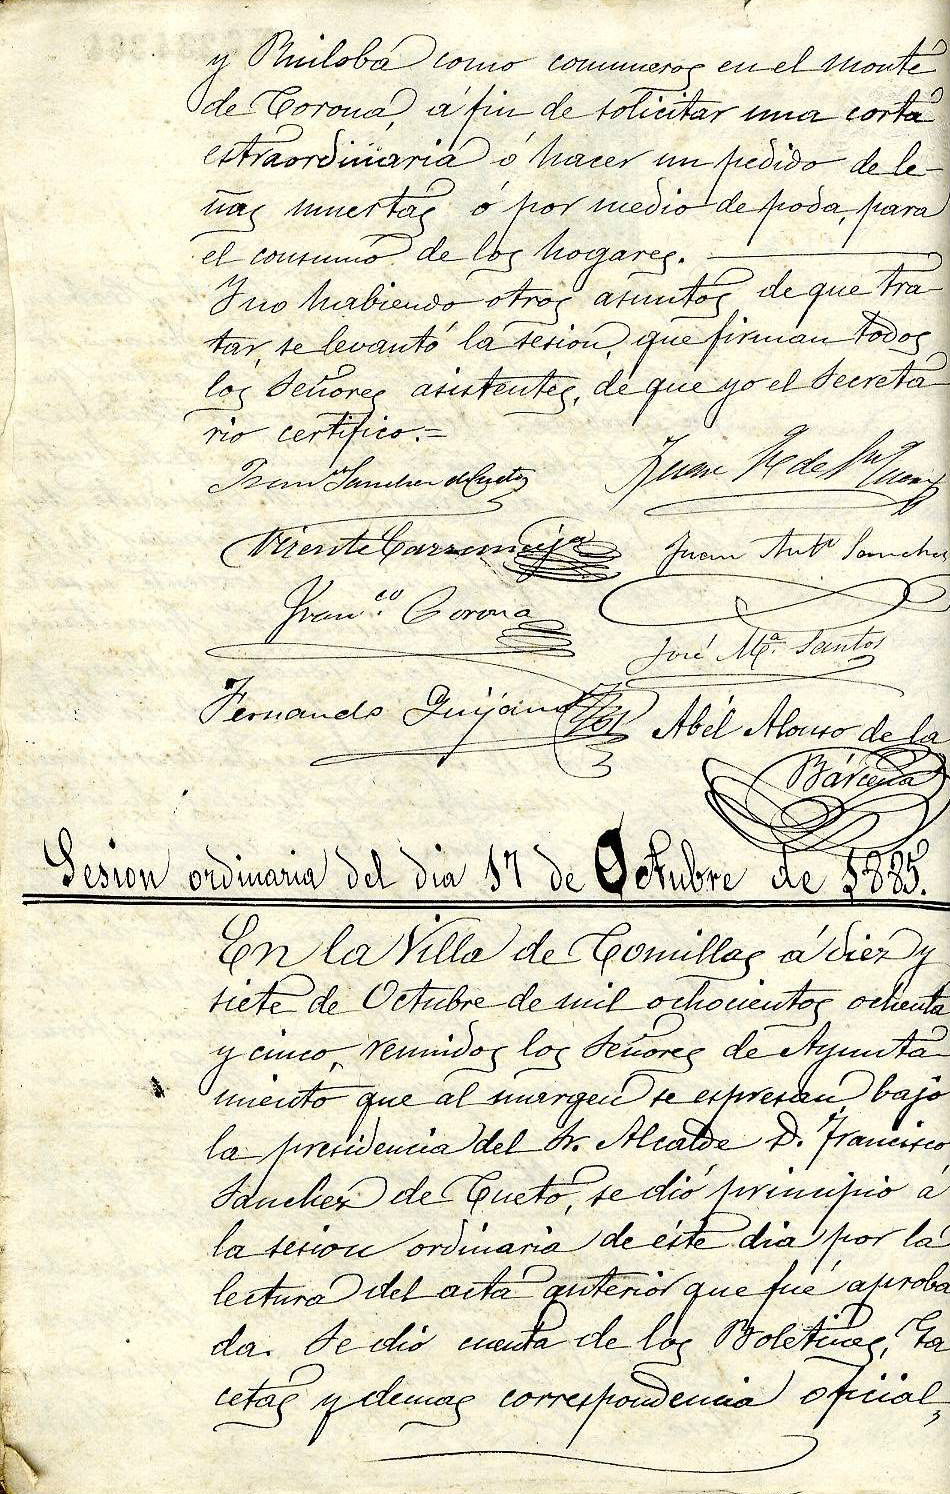 y Ruiloba como comuneros en el monte
de Corona, á fin de solicitar una corta
estraordinaria ó hacer un pedido de le-
ñas muertas ó por medio de poda, para
el consumo de los hogares.
Y no habiendo otros asuntos de que tra-
tar, se levantó la sesion, que firman todos
los Señores asistentes, de que yo el Secreta-
rio certifico.=
Fran.co Sanchez de Cueto
Juan
Vicente
Juan Ant.º Sanchez
Fran.co Corona
José M.ª Santos
Fernando Quijano
Abél Alonso de la
Bárcena
Sesion ordinaria del dia 17 de Octubre de 1885.
En la Villa de Comillas á diez y
siete de Octubre de mil ochocientos ochenta
y cinco, reunidos los Señores de Ayunta-
miento que al margen se espresan bajo
la presidencia del Sr. Alcalde D. Francisco
Sanchez de Cueto, se dió principio a
la sesion ordinaria de éste dia por la
lectura del acta anterior que fué aproba
da. Se dió cuenta de los Boletines, Ga
cetas y demas correspondencia oficial,